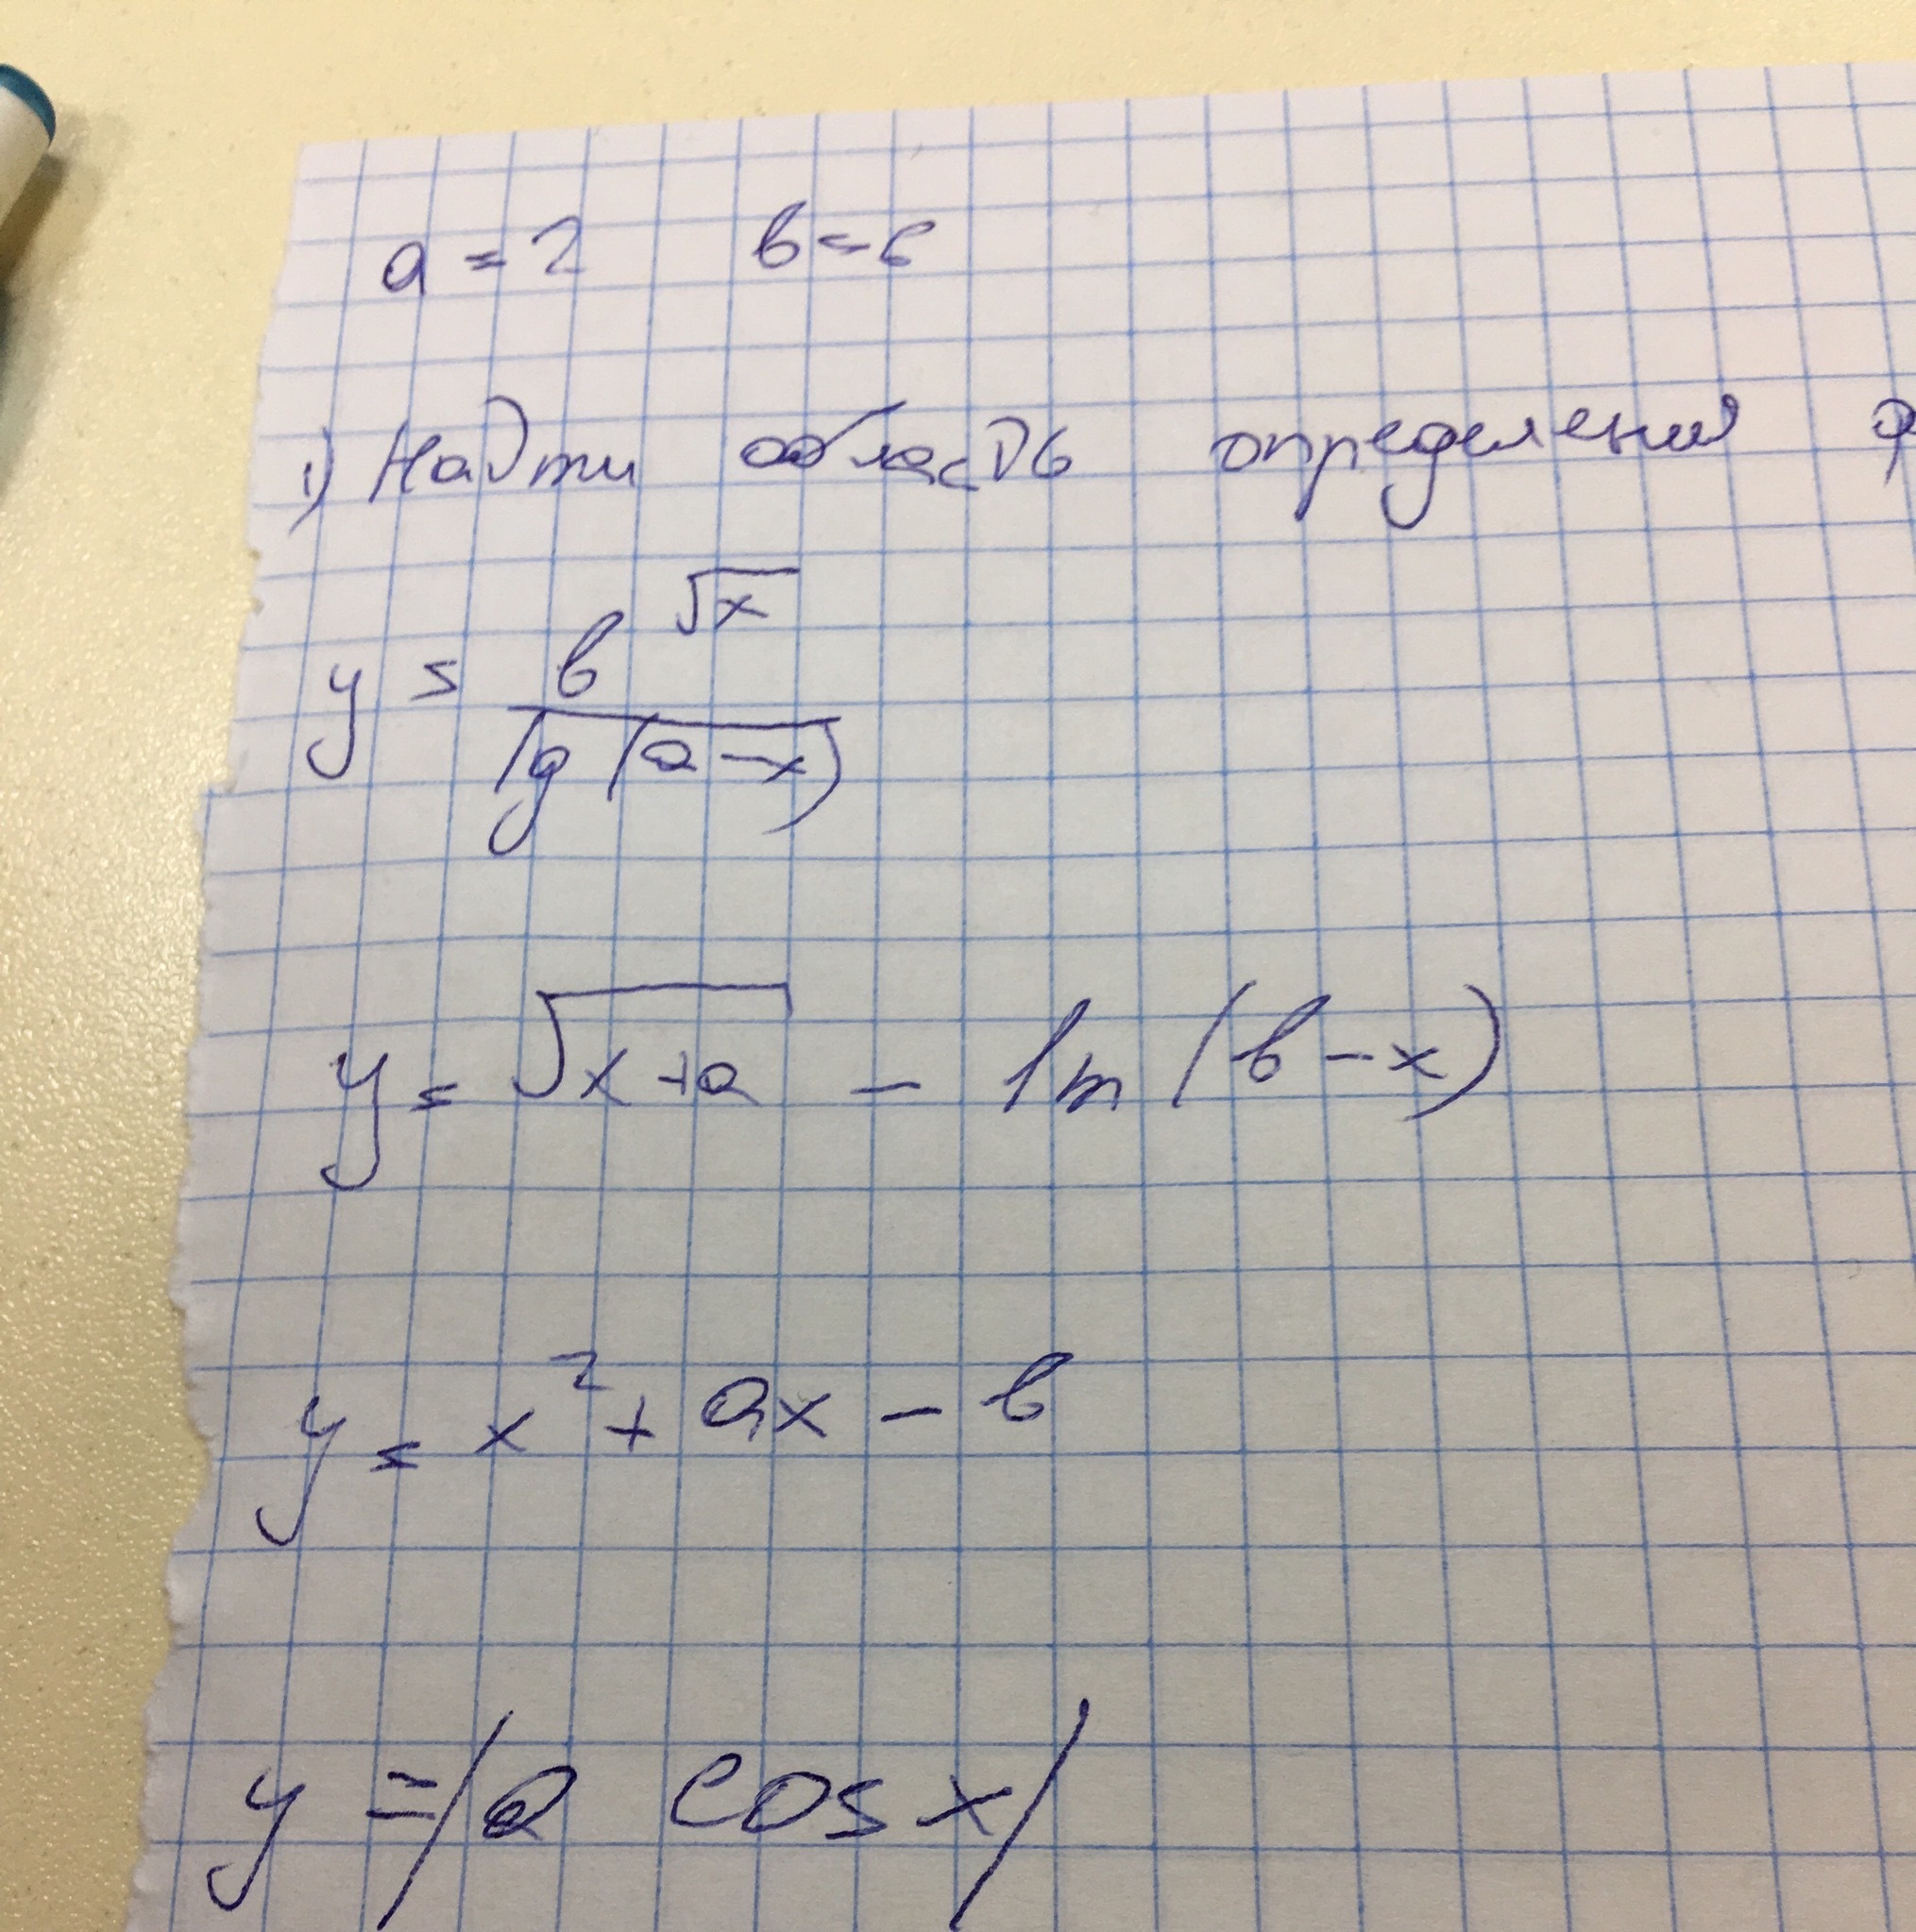 a = 2 b = 6
1) Найти область определения ф
y = b^√x / lg (a - x)
y = √(x + a) - ln (b - x)
y = x² + ax - b
y = |a cos x|